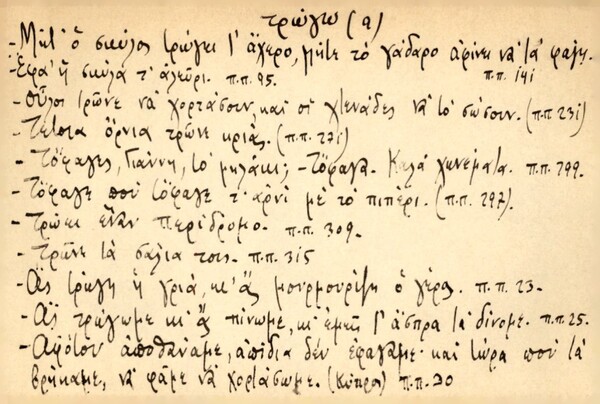 τρώγω (α)
- Μήτ' ὁ σκύλος τρώγει τ' ἄχερο, μήτε τὸ γάδαρο ἀφίνει νὰ τὰ φάῃ.
- Ἔφα' ἡ σκύλα τ' ἀλεῦρι. π.π. 95. π.π. 141
- Οὗλοι τρῶνε νὰ χορτάσουν, καὶ οἱ χτενάδες νὰ τὸ σώσουν. (π.π 231)
- Τέτοια ὄρνια τρῶνε κριάς. (π.π. 271)
- Τὄφαγες, Γιάννη, τὸ μηλάκι; - Τὄφαγα. Καλὰ χωνέματα. π.π. 299.
- Τὄφαγε ποὺ τὄφαγε τ' ἀρνὶ μὲ τὸ πιπέρι. (π.π. 297).
- Τρώει ἕναν περίδρομο. π.π. 309.
- Τρῶνε τὰ σάλια τους. π.π. 315
- Ἂς τρώγῃ ἡ γριά, κι' ἂς μουρμουρίζῃ ὁ γέρος. π.π. 23.
- Ἂς τρώγωμε κι' ἂς πίνωμε, κι' ἐμεῖς τ' ἄσπρα τὰ δίνομε. π.π. 25.
- Ἀφότου ἀποθάναμε, ἀπίδια δὲν ἐφάγαμε· καὶ τώρα ποὺ τὰ
βρήκαμε, νὰ φᾶμε νὰ χορτάσωμε. (Κύπρος) π.π. 20